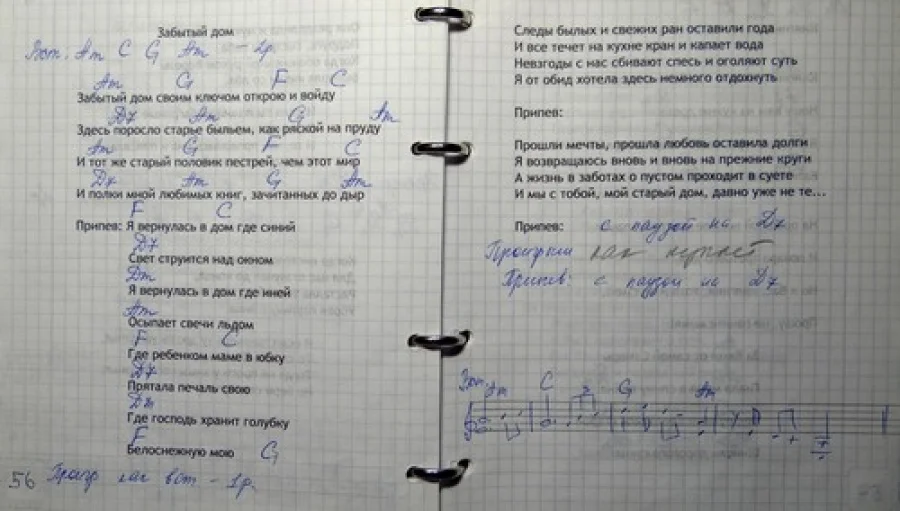 Забытый дом
Вст. Am C G Am – 1р.
Am G F C
Забытый дом своим ключом открою и войду
D7 Am G Am
Здесь поросло старье быльем, как ряской на пруду
Am G F C
И тот же старый половик пестрей, чем этот мир
D7 Am G Am
И полки мной любимых книг, зачитанных до дыр
F C
Припев: Я вернулась в дом где синий
D7
Свет струится над окном
Dm
Я вернулась в дом где иней
Am
Осыпает свечи льдом
F C
Где ребенком маме в юбку
D7
Прятала печаль свою
Dm
Где господь хранит голубку
F
Белоснежную мою G
56 Проигр как вст – 1р.
Следы былых и свежих ран оставили года
И все течет на кухне кран и капает вода
Невзгоды с нас сбивают спесь и оголяют суть
Я от обид хотела здесь немного отдохнуть
Припев:
Прошли мечты, прошла любовь оставила долги
Я возвращаюсь вновь и вновь на прежние круги
А жизнь в заботах о пустом проходит в суете
И мы с тобой, мой старый дом, давно уже не те...
Припев: с паузой на D7
Проигрыш как куплет
Припев: с паузой на D7
Вст. Am C G Am